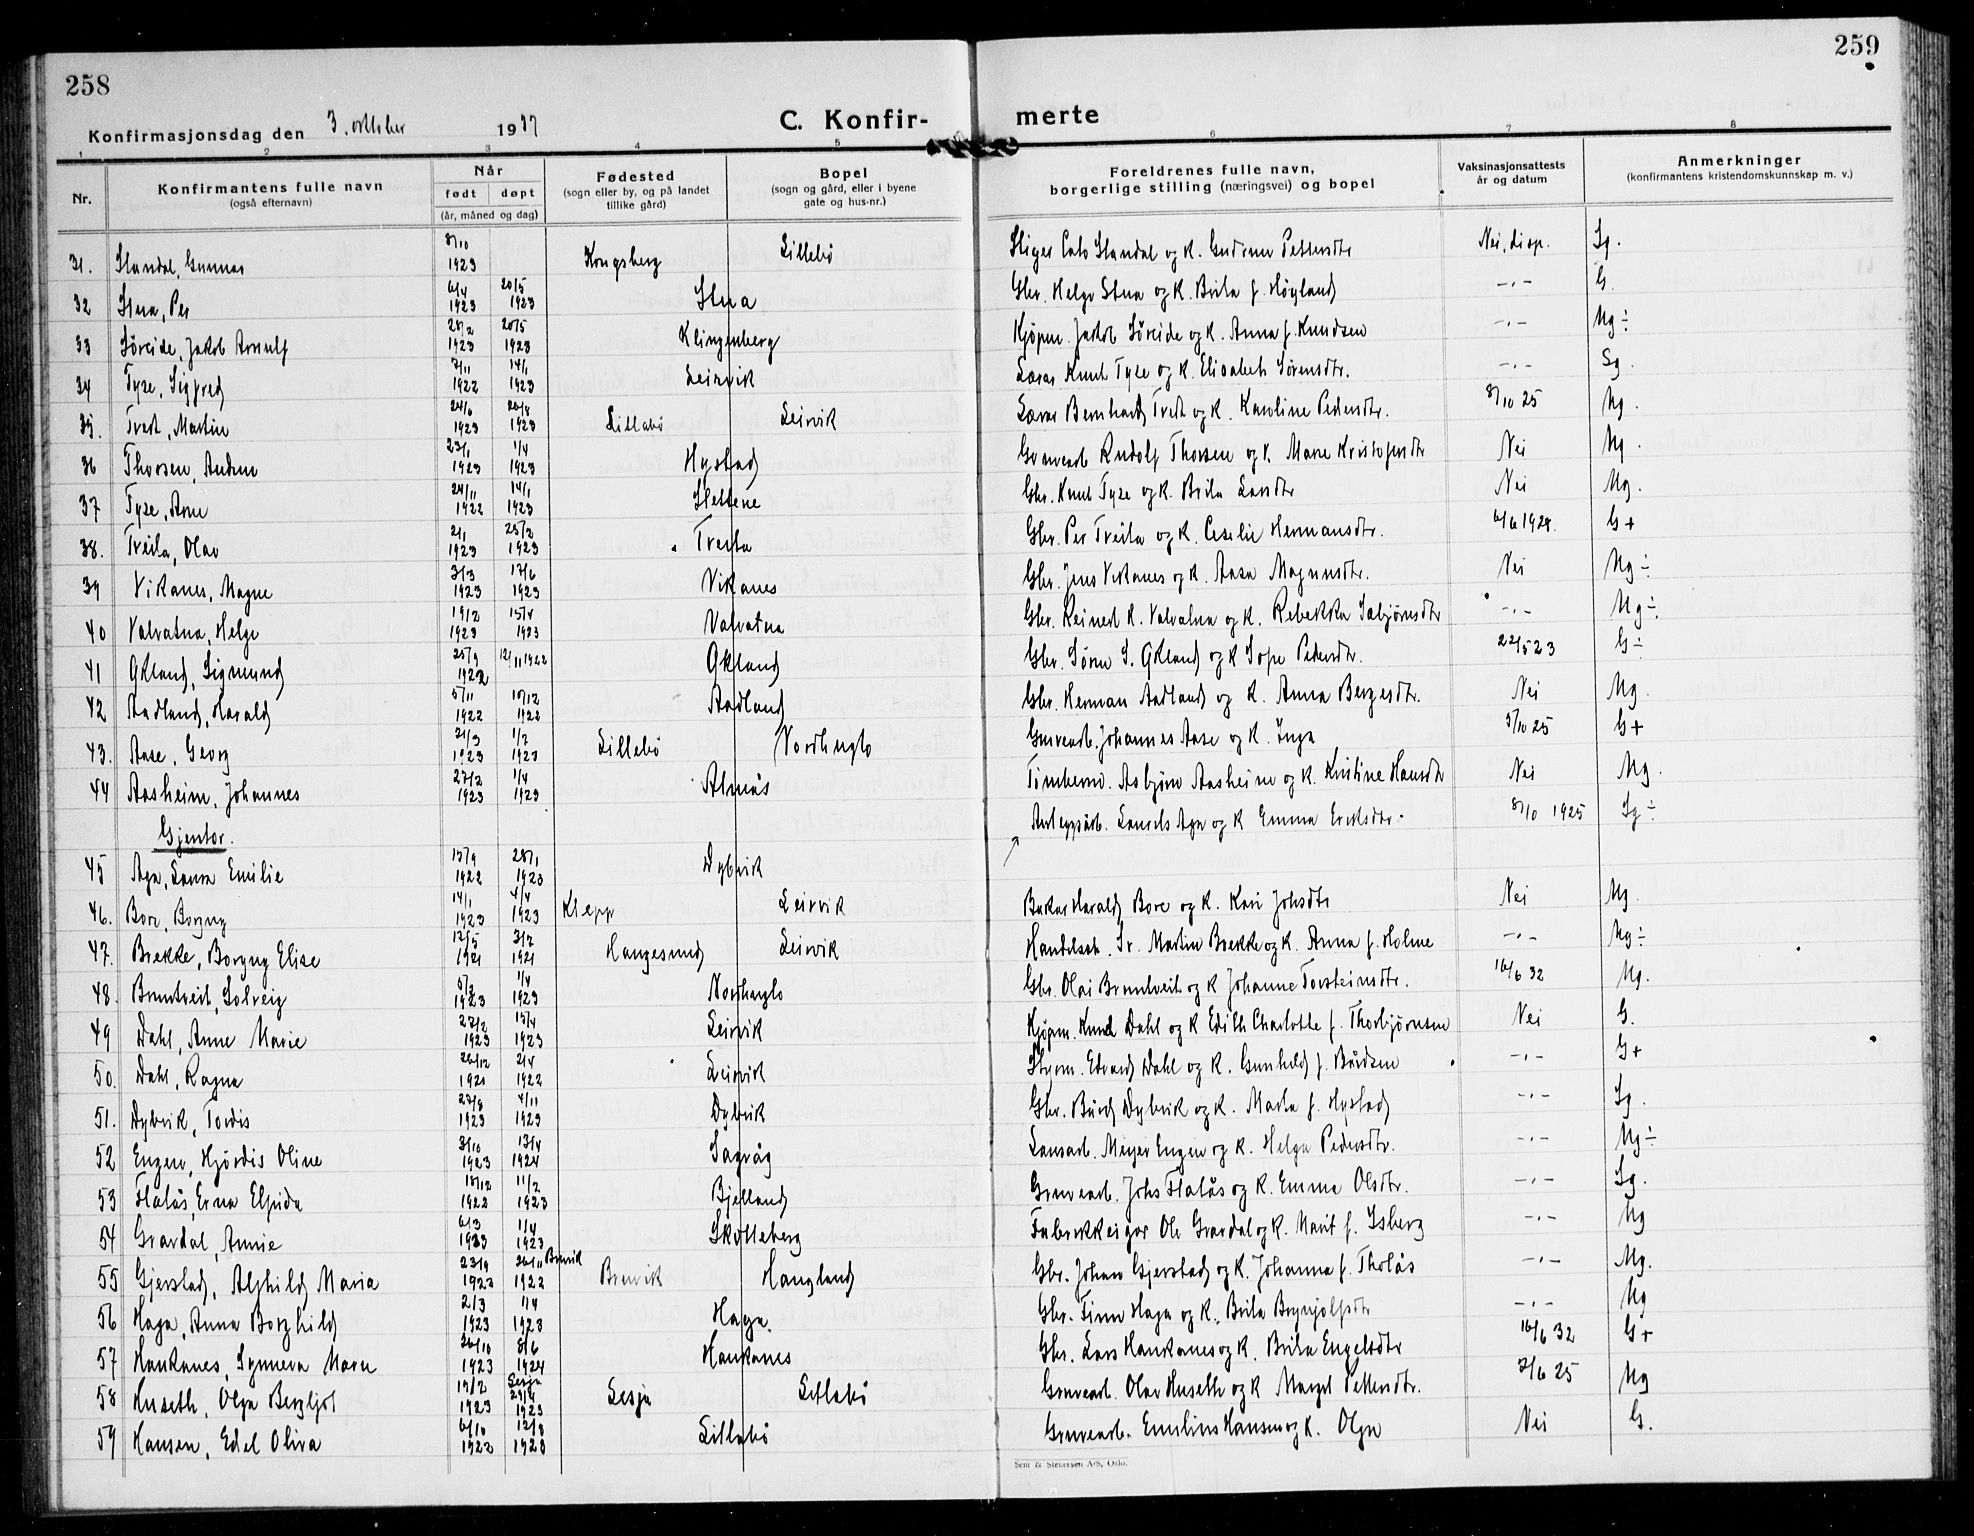 258
259
Konfirmasjonsdag den 3. oktober 1937
C. Konfir-
merte
1 2 3 4 5 6 7 8
Nr.
Konfirmantens fulle navn
(også efternavn)
Når
født døpt
(år, måned og dag)
Fødested
(sogn eller by, og på landet
tillike gård)
Bopel
(sogn og gård, eller i byene
gate og hus-nr.)
Foreldrenes fulle navn,
borgerlige stilling (næringsvei) og bopel
Vaksinasjonsattests
år og datum
Anmerkninger
(konfirmantens kristendomskunnskap m. v.)
31. Standal, Gunnar 8/10 1923 Kongsberg Lillebö Stiger Cato Standal og k. Gudrun Pettersdtr Nei, disp. Sg.
32 Stua, Per 6/4 1923 20/5 1923 Stua Gbr. Helge Stua og k. Brita f. Høyland -"- G.
33 Söreide, Jakob Arnulf 28/2 1923 20/5 1923 Klingenberg Kjøpm. Jakob Söreide og k. Anna f. Knudsen -"- Mg ÷
34 Tyse, Sigfred 7/11 1922 14/1 1923 Leirvik Lærer Knut Tyse og k. Elisabeth Sörensdtr. -"- Sg.
35. Tvedt, Martin 24/6 1923 26/8 1923 Lillebö Leirvik Lærer Bernhard Tvedt og k. Karoline Pedersdtr. 8/10 25 Mg.
36 Thorsen, 23/1 1923 1/4 1923 Hystad Gruvearb Rudolf Thorsen og k. Marie Kristofersdtr Nei Mg.
37 Tyse, Arne 24/11 1922 14/1 1923 Slettene Gbr. Knut Tyse og k. Brita Larsdtr Nei Mg.
38. Tveita, Olav 2/1 1923 25/2 1923 Tveita Gbr. Per Tveita og k. Cesilie Hermansdtr. 6/6 1928. G+
39 Vikanes, Magne 3/3 1923 17/6 1923 Vikanes Gbr. Jens Vikanes og k. Aasa Magnusdtr. Nei Mg ÷
40 Valvatna, Helge 19/2 1923 15/4 1923 Valvatna Gbr. Reinert K. Valvatna og k. Rebekka Sæbjørnsdtr -"- Mg ÷
41 Økland, Sigmund 25/9 1922 12/11 1922 Økland Gbr. Sören S. Økland og k Sofie Pedersdtr. 22/5 23 G ÷
42 Aadland, Harald 5/11 1922 10/12 1922 Aadland Gbr. Herman Aadland og k. Anna Bergesdtr. Nei Mg.
43. Aase, Georg 21/3 1923 1/7 1923 Lillebö Nordhuglo Gruvearb. Johannes Aase og k. Inga 3/10 25 G+
44 Aasheim, Johannes 27/2 1923 1/4 1923 Almås Tömberm. Asbjørn Aasheim og k. Kristine Hansdtr Nei Mg.
Gjentor.
45 Aga, Laura Emilie 15/9 1922 28/1 1923 Dybvik Anleggsarb. Laurits Aga og k Emma Eriksdtr. 8/10 1925 Sg ÷
46. Bore, Borgny 14/1 1923 4/4 1923 Klepp Leirvik Baker Harald Bore og k. Kari Johsdtr Nei Mg.
47. Brekke, Borgny Elise 12/5 1921 3/7 1921 Haugesund Leirvik Handelsb. Sr. Martin Brekke og k. Anna f. Holme -"- Mg ÷
48. Brandtveit, Solveig 5/2 1923 1/4 1923 Nordhuglo Gbr. Olai Brandtveit og k Johanne Torsteinsdtr. 16/6 32 Mg.
49 Dahl, Anne Marie 27/2 1923 15/4 1923 Leirvik Kjøpm. Knud Dahl og k Edith Charlotte f. Thorbjørnsen Nei G.
50. Dahl, Ragna 26/12 1921 2/4 1922 Leirvik Skpm. Edvard Dahl og k. Gunhild f. Bårdsen -"- G+
51. Dybvik, Tordis 27/8 1923 4/11 1923 Dybvik Gbr. Bård Dybvik og k. Marta f. Hystad -"- Sg.
52 Engen, Hjördis Oline 3/10 1923 13/4 1924 Sagvåg Meyer Engen og k. Helga Pedersdtr. -"- Mg ÷
53 Flatås, Erna Elfrida 10/12 1922 11/2 1923 Bjelland Gruvearb. Johs Flatås og k. Emma Olsdtr. -"- Sg.
54 Gravdal, Annie 6/3 1923 1/4 1923 Skotteberg Fabrikkeigar Ole Gravdal og k. Marit f. Isberg -"- Mg
55 Gjerstad, Alfhild Maria 23/9 1922 26/11 1922 Bremvik Brevik Haugland Gbr. Johan Gjerstad og k. Johanna f. Tholås -"- Mg.
56 Haga, Anna Borghild 2/3 1923 1/4 1923 Haga. Gbr. Finn Haga og k. Brita Brynjolfsdtr -"- Mg
57 Haukanes, Synneva Marie 26/10 1923 8/6 1924 Haukanes Gbr. Lars Haukanes og k. Brita Engelsdtr 16/6 32 G+
58 Huseth, Olga Bergljot 19/2 1923 Lesja 29/4 1923 Lesja Lillebö Gruvearb. Olav Huseth og k Margit Pettersdtr. 7/6 25 Mg
59 Hansen, Edel Oliva 6/10 1922 12/8 1923 Lillebö Gruvearb. Emilius Hansen og k. Olga Nei G.
Sem & Stenersen A/S, Oslo.